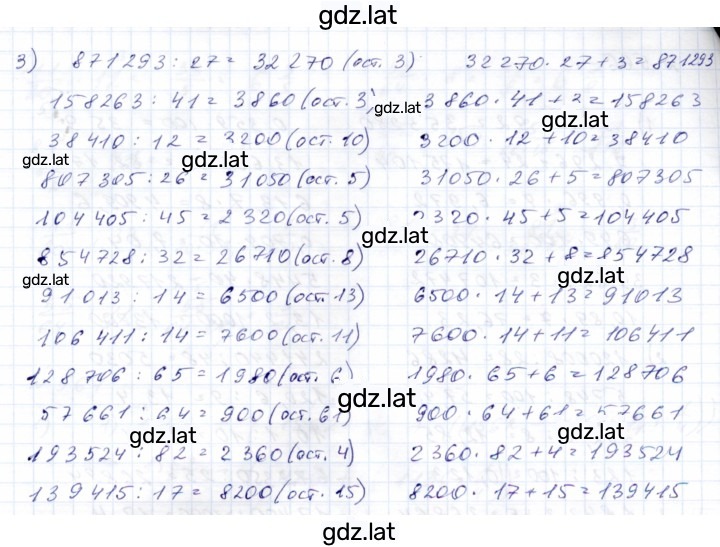 gdz.lat
3) 871293 : 27 = 32270 (ост. 3) 32270 · 27 + 3 = 871293
158263 : 41 = 3860 (ост. 3) gdz.lat 3860 · 41 + 3 = 158263
gdz.lat
38410 : 12 = 3200 (ост. 10) 3200 · 12 + 10 = 38410
gdz.lat gdz.lat
807305 : 26 = 31050 (ост. 5) 31050 · 26 + 5 = 807305
104405 : 45 = 2320 (ост. 5) 2320 · 45 + 5 = 104405
gdz.lat
854728 : 32 = 26710 (ост. 8) 26710 · 32 + 8 = 854728
gdz.lat gdz.lat
91013 : 14 = 6500 (ост. 13) 6500 · 14 + 13 = 91013
106411 : 14 = 7600 (ост. 11) 7600 · 14 + 11 = 106411
128706 : 65 = 1980 (ост. 6) 1980 · 65 + 6 = 128706
gdz.lat
57661 : 64 = 900 (ост. 61) 900 · 64 + 61 = 57661
gdz.lat gdz.lat
193524 : 82 = 2360 (ост. 4) 2360 · 82 + 4 = 193524
139415 : 17 = 8200 (ост. 15) 8200 · 17 + 15 = 139415
gdz.lat